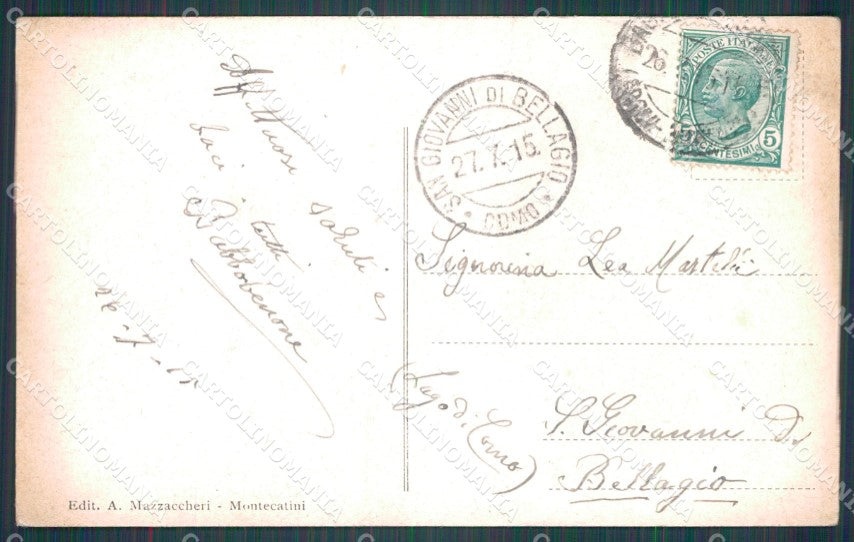 Affettuosi saluti e
baci a tutti
Babbobenone
26-7-15
Edit. A. Mazzaccheri - Montecatini
SAN GIOVANNI DI BELLAGIO
27.7.15
COMO
BAG
26.
POSTE ITALIANE
5
CENTESIMI
Signorina Lea Martelli
S. Giovanni di
Bellagio
(Lago di
Como)
CARTOLINOMANIA